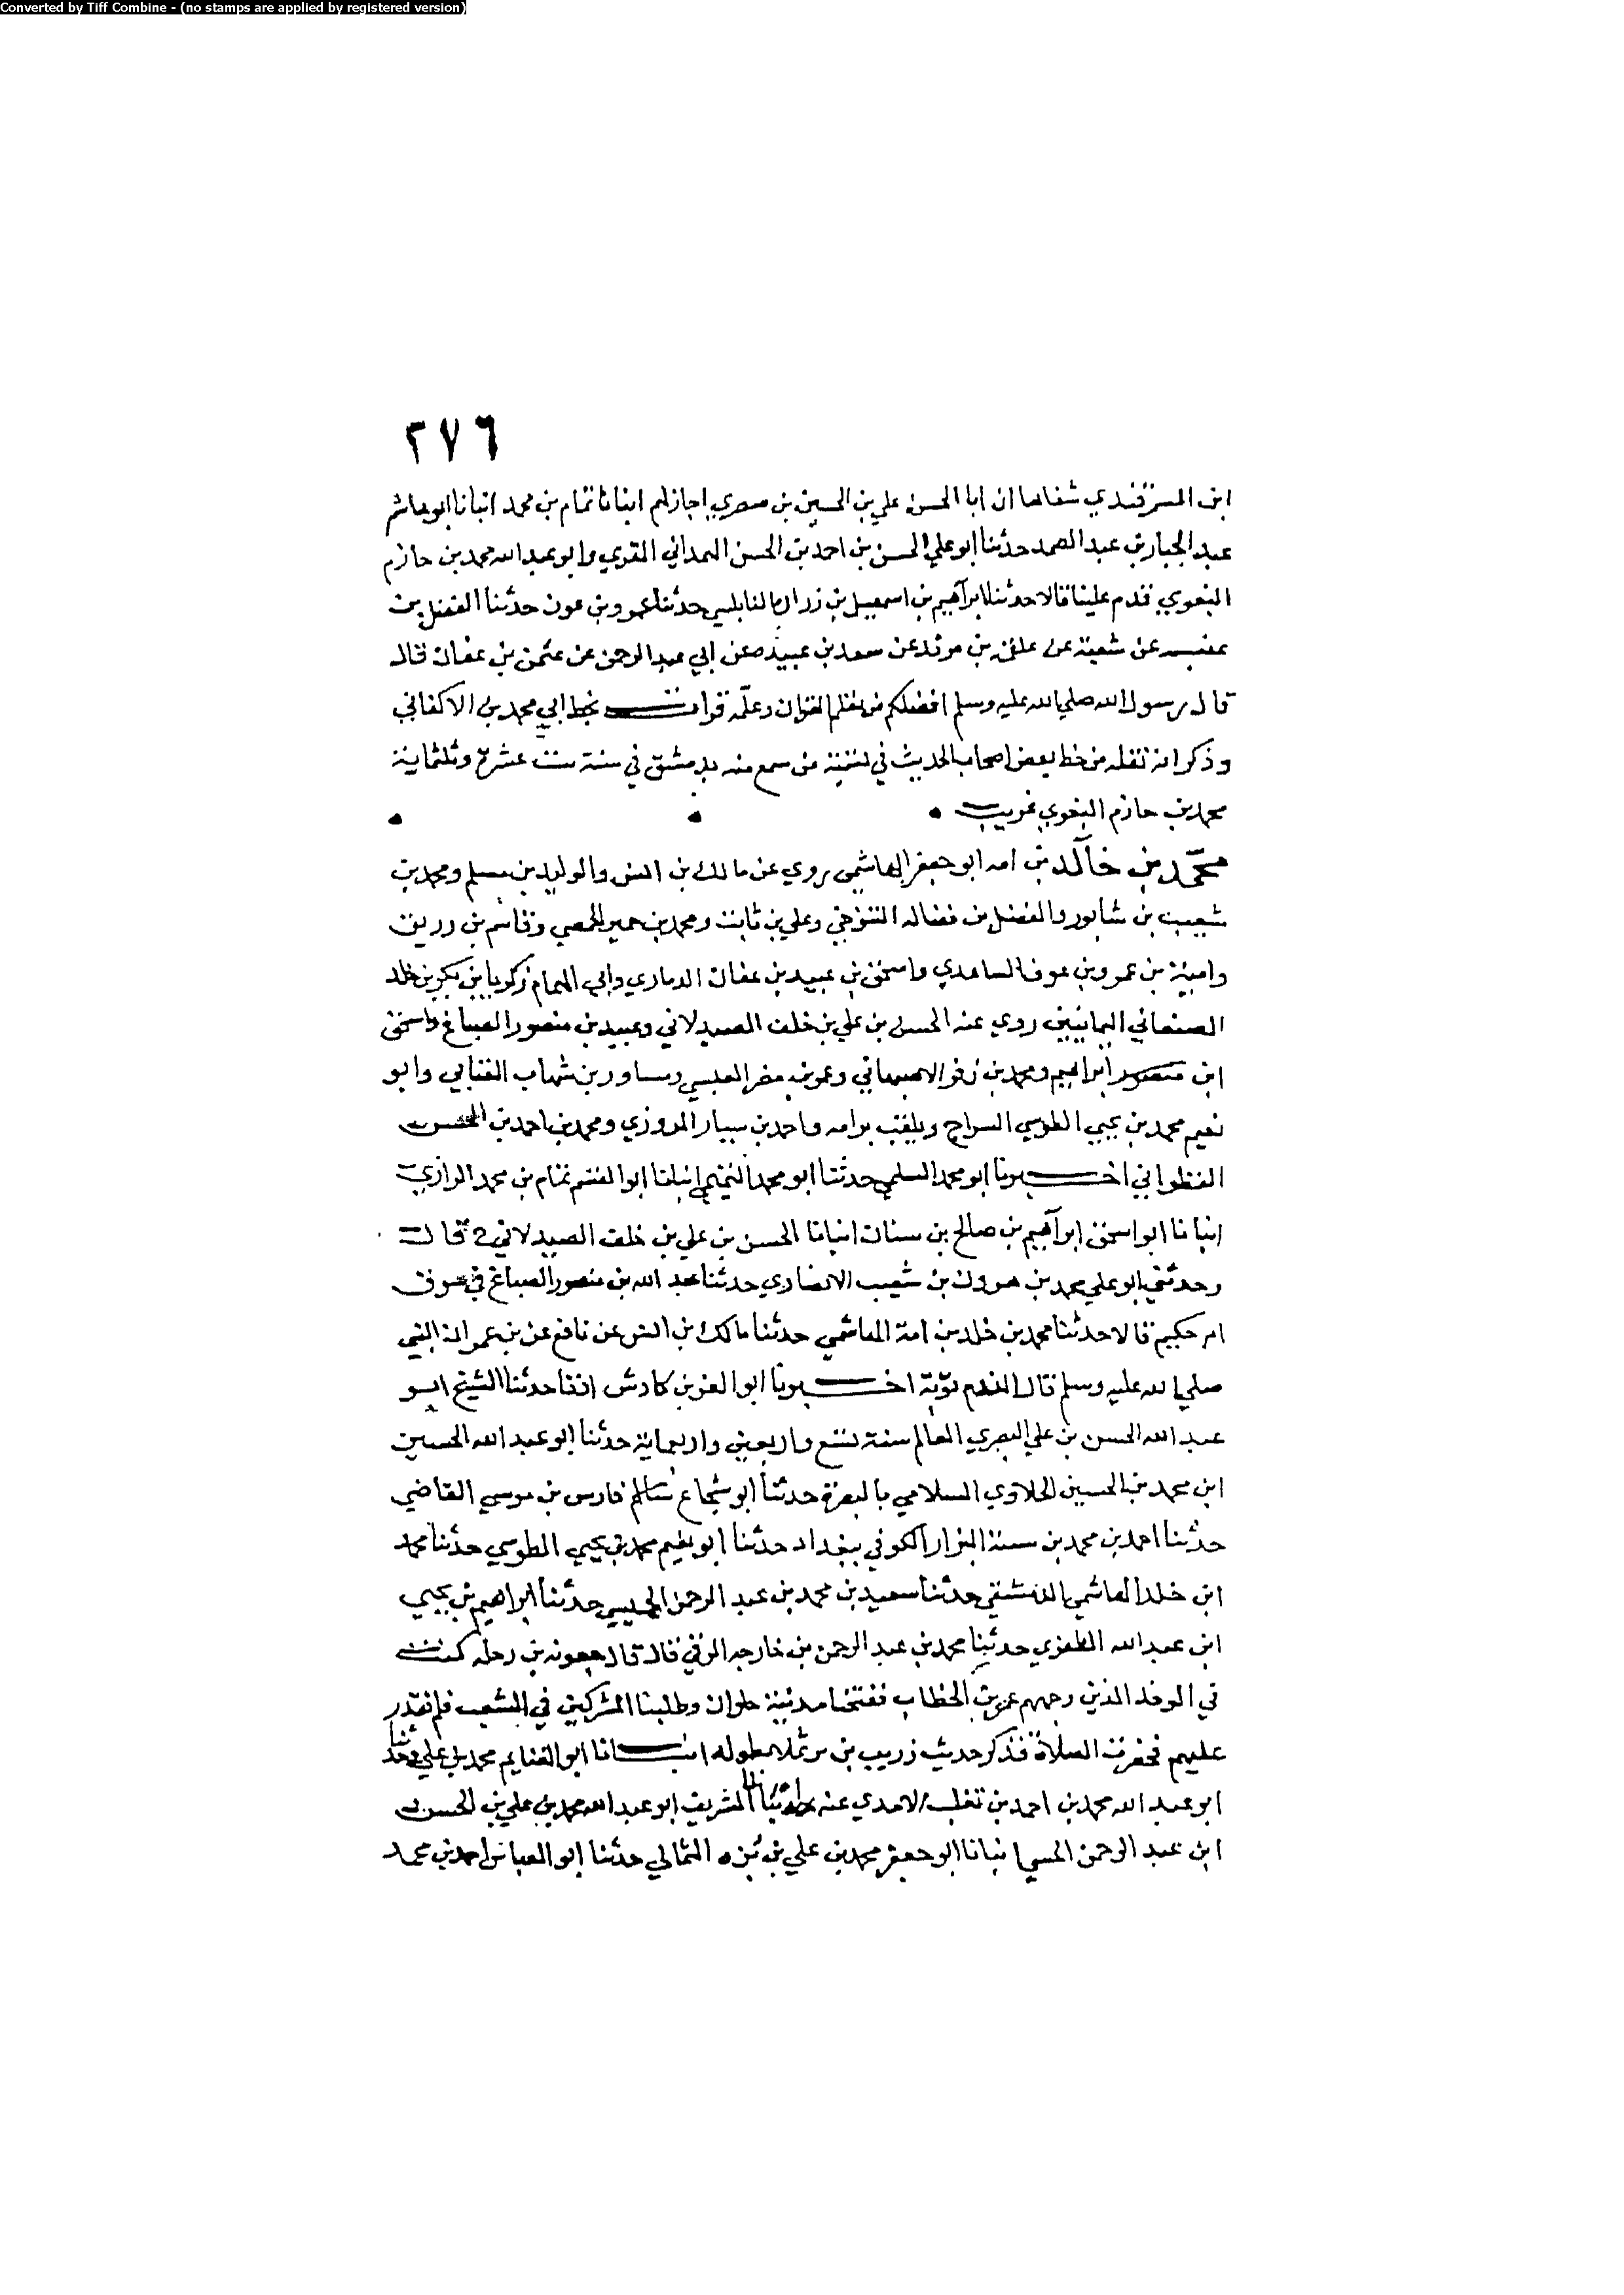 Converted by Tiff Combine - (no stamps are applied by registered version)
٢٧٦
ابن السمرقندي شفاها ان ابا الحسن علي بن الحسين بن صصري اجاز لهم انبانا تمام بن محمد انبانا ابو هاشم
عبد الجبار بن عبد الصمد حدثنا ابو علي الحسن بن احمد بن الحسن الهمداني المقري وابو عبد الله محمد بن حازم
البغوي قدم علينا قالا حدثنا ابراهيم بن اسمعيل بن زرارة النابلسي حدثنا عمرو بن عون حدثنا الفضل بن
عنبسه عن شعبة عن علقمه بن مرثد عن سعد بن عبيده عن ابي عبد الرحمن عن عثمن بن عفان قال
قال رسول الله صلي الله عليه وسلم افضلكم من تعلم القران وعلمه قرات بخط ابي محمد بن الاكفاني
وذكر انه نقله من خط بعض اصحاب الحديث في تسمية من سمع منه بدمشق في سنة ست عشرة وثلثماية
محمد بن حازم البغوي غريب
محمد بن خالد بن امه ابو جعفر الهاشمي روي عن مالك بن انس والوليد بن مسلم ومحمد بن
شعيب بن شابور والفضل بن فضاله التنوخي وعلي بن ثابت ومحمد بن حمير الحمصي وقاسم بن رريق
وامية بن عمرو بن عوف الساعدي واسحق بن عبيد بن عفان الدماري وابي الهمام زكريا بن بكر بن خلد
الصنعاني اليمانيين روي عنه الحسن بن علي بن خلف الصيدلاني وعبيد بن منصور الصباغ واسحق
ابن ابراهيم ومحمد بن زفر الاصبهاني وعمر بن مضر العبسي ومساور بن شهاب الغناني وابو
نعيم محمد بن يحيي الطوسي السراج ويلقب برامه واحمد بن سيار المروزي ومحمد بن احمد بن الحسن
القطواني اخبرنا ابو محمد السلمي حدثنا ابو محمد التميمي انبانا ابو القسم تمام بن محمد الرازي
انبانا ابو اسحق ابراهيم بن صالح بن سنان انبانا الحسن بن علي بن خلف الصيدلاني ح قال
وحدثني ابو علي محمد بن هرون بن شعيب الانصاري حدثنا عبد الله بن منصور الصباغ في سوق
ام حكيم قالا حدثنا محمد بن خلد بن امة الهاشمي حدثنا مالك بن انس عن نافع عن بن عمر ان النبي
صلي الله عليه وسلم قال الندم توبة اخبرنا ابو العز بن كادش اذنا حدثنا الشيخ ابو
عبد الله الحسن بن علي البصري العالم سنة تسع واربعين واربعماية حدثنا ابو عبد الله الحسين
ابن محمد بن الحسين الحلاوي السلامي بالبصرة حدثنا ابو شجاع فارس بن موسي القاضي
حدثنا احمد بن محمد بن سنة البزار الكوفي ببغداد حدثنا ابو نعيم محمد بن يحيي الطوسي حدثنا محمد
ابن خلد الهاشمي الدمشقي حدثنا سعيد بن محمد بن عبد الرحمن حدثنا ابراهيم بن يحيي
ابن عبد الله الظفري حدثنا محمد بن عبد الرحمن بن خارجه الرقي قال قال جعونه بن رحله كنت
في الوفد الذين وجههم عمر بن الخطاب ففتحنا مدينة حلوان وطلبنا المشركين في الشعب فلم نقدر
عليهم فحضرت الصلاة فذكر حديث زريب بن برثملا بطوله انبانا ابو الغنايم محمد بن علي وحدثنا
ابو عبد الله محمد بن احمد بن تغلب الامدي عنه انبانا الشريف ابو عبد الله محمد بن علي بن الحسن
ابن عبد الرحمن الحسي انبانا ابو جعفر محمد بن علي بن بزه الثمالي حدثنا ابو العباس احمد بن محمد